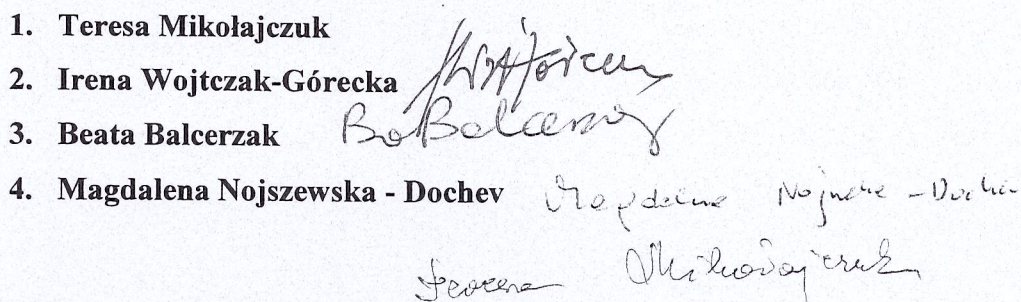 1. Teresa Mikołajczuk
2. Irena Wojtczak-Górecka
3. Beata Balcerzak
BaBalcerzak
4. Magdalena Nojszewska - Dochev
Magdalena Nojszewska - Dochev
Teresa Mikołajczuk